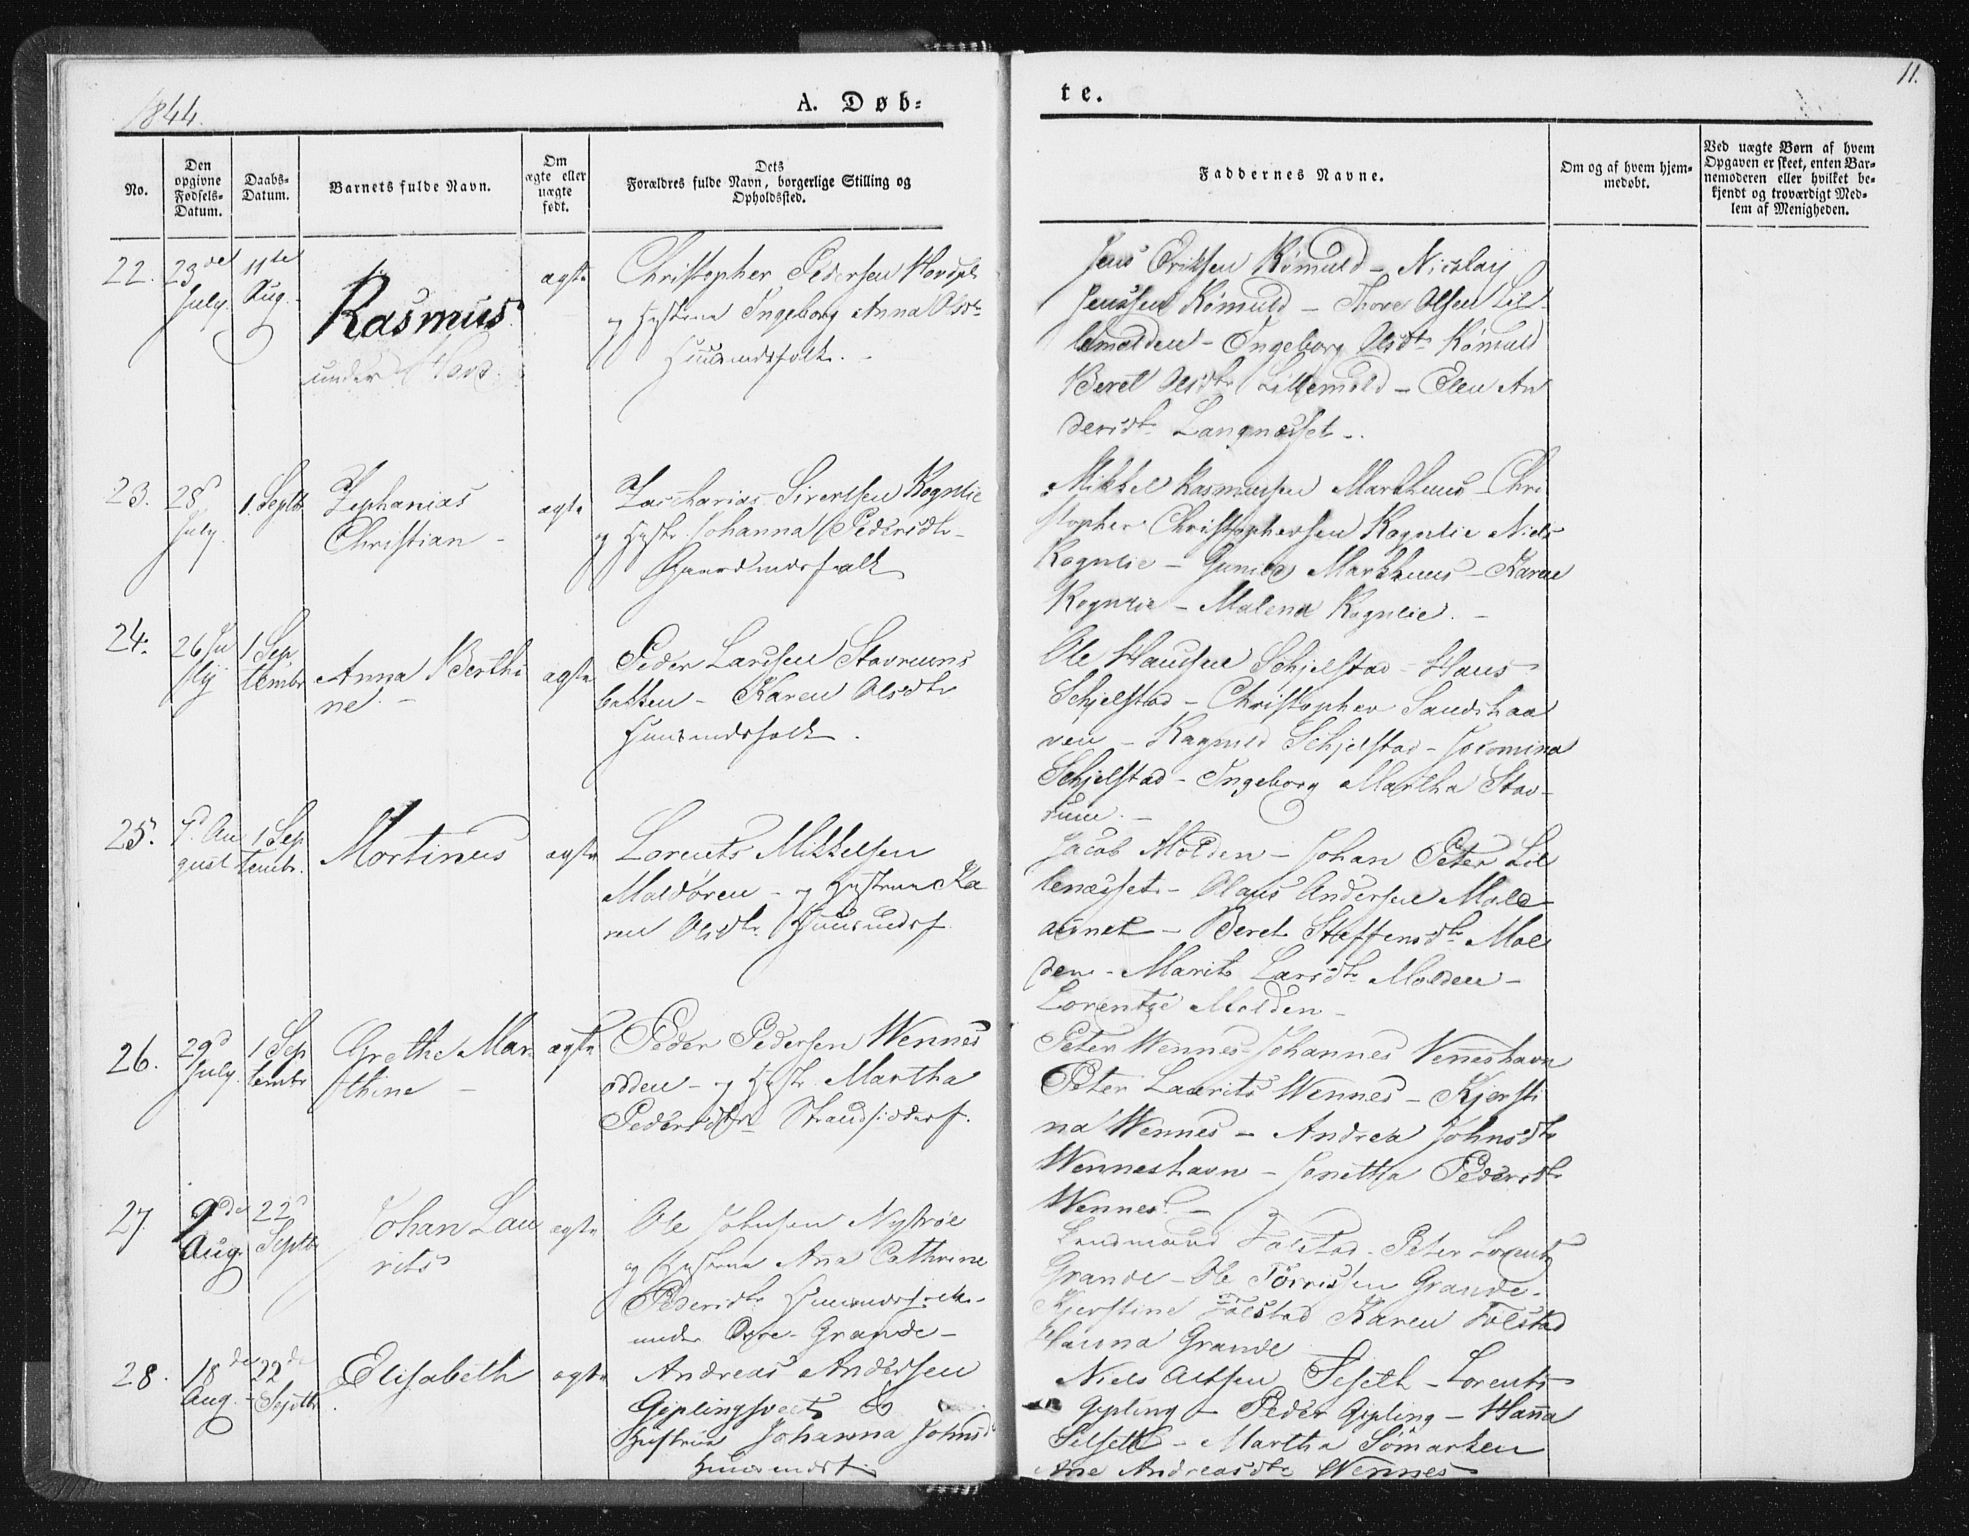 11.
1844.
A. Døb-
te.
No.
Den opgivne Fødsels-Datum.
Daabs-Datum.
Barnets fulde Navn.
Om ægte eller uægte født.
Dets Forældres fulde Navn, borgerlige Stilling og Opholdssted.
Faddernes Navne.
Om og af hvem hjem-medøbt.
Ved uægte Børn af hvem Opgaven er skeet, enten Bar-nemoderen eller hvilket be-kjendt og troværdigt Med-lem af Menigheden.
22. 23de July. 11te Aug.
Rasmus
under
ægte
Christopher Pedersen
og Hustrue Ingeborg Anna Olsdtr
Huusmdsfolk.
Jens Eriksen Rømuld - Nicolay
Jenssen Rømuld - Thore Olsen Lil-
lemolden - Ingeborg Olsdtr Rømuld
Beret Olsdtr Lillemold - Elen An
dersdtr Langnæsset
23. 28 July. 1. Septb
Zephanias
Christian
ægte
Zacharias Sivertsen Rognlie
og Hustr. Johanna Pedersdtr
Gaardmdsfolk
Mikkel Rasmussen Markhuus - Chri
stopher Christophersen Rognlie Niels
Rognlie - Markhuus - Karen
Rognlie - Malena Rognlie.
24. 26 Ju
ly 1 Sep
tembr
Anna Berthi
ne.
ægte
Peder Larssen Stavrums
bakken - Karen Olsdtr
Huusmdsfolk.
Ole Hanssen Schjelstad - Hans
Schjelstad - Christopher Sandshaa
ven - Ragnild Schjelstad - Jocomina
Schjelstad - Ingeborg Martha Stav-
rum.
25. Au
gust 1 Sep
tembr.
Mortinus
ægte
Lorents Mikkelsen
Moldøren - og Hustrue Ka
ren Olsdtr. Huusmdsf.
Jacob Molden - Johan Peter Lil
lenæsset - Olaus Andersen Mold
aunet - Beret Steffensdtr Mol
den - Marit Larsdtr Molden -
Lorentze Molden -
26. 29 July. 1 Sep
tembr
Grethe Mar
thine
ægte
Peder Pedersen Wennes
odden - og Hustr. Martha
Pedersdtr Strandsiddersf.
Peter Wennes - Johannes Venneshavn
Peter Laurits Wennes - Kjersti
na Wennes - Andrea Johnsdtr
Wenneshavn - Jonetha Pedersdtr
Wennes.
27. 9de Aug. 22 Septb
Johan Lau
rits
ægte
Ole Johnsen Nystrøe
og Hustrue Ana Cathrine
Pedersdtr Huusmdsfolk
under Øvre-Grande -
Landmand Folstad - Peter Lorents
Grande - Ole Torrissen Grande.
Kjerstine Folstad Karen Folstad
Hanna Grande
28. 18de Aug. 22de Septb.
Elisabeth
ægte
Andreas Andersen
Giplingsveet &
Hustrue Johanna Johnsd
Huusmdsf.
Niels Seseth - Lorents
Gipling - Peder Gipling - Hanna
Selseth - Martha Sømarken
Ane Andreasdtr Wennes